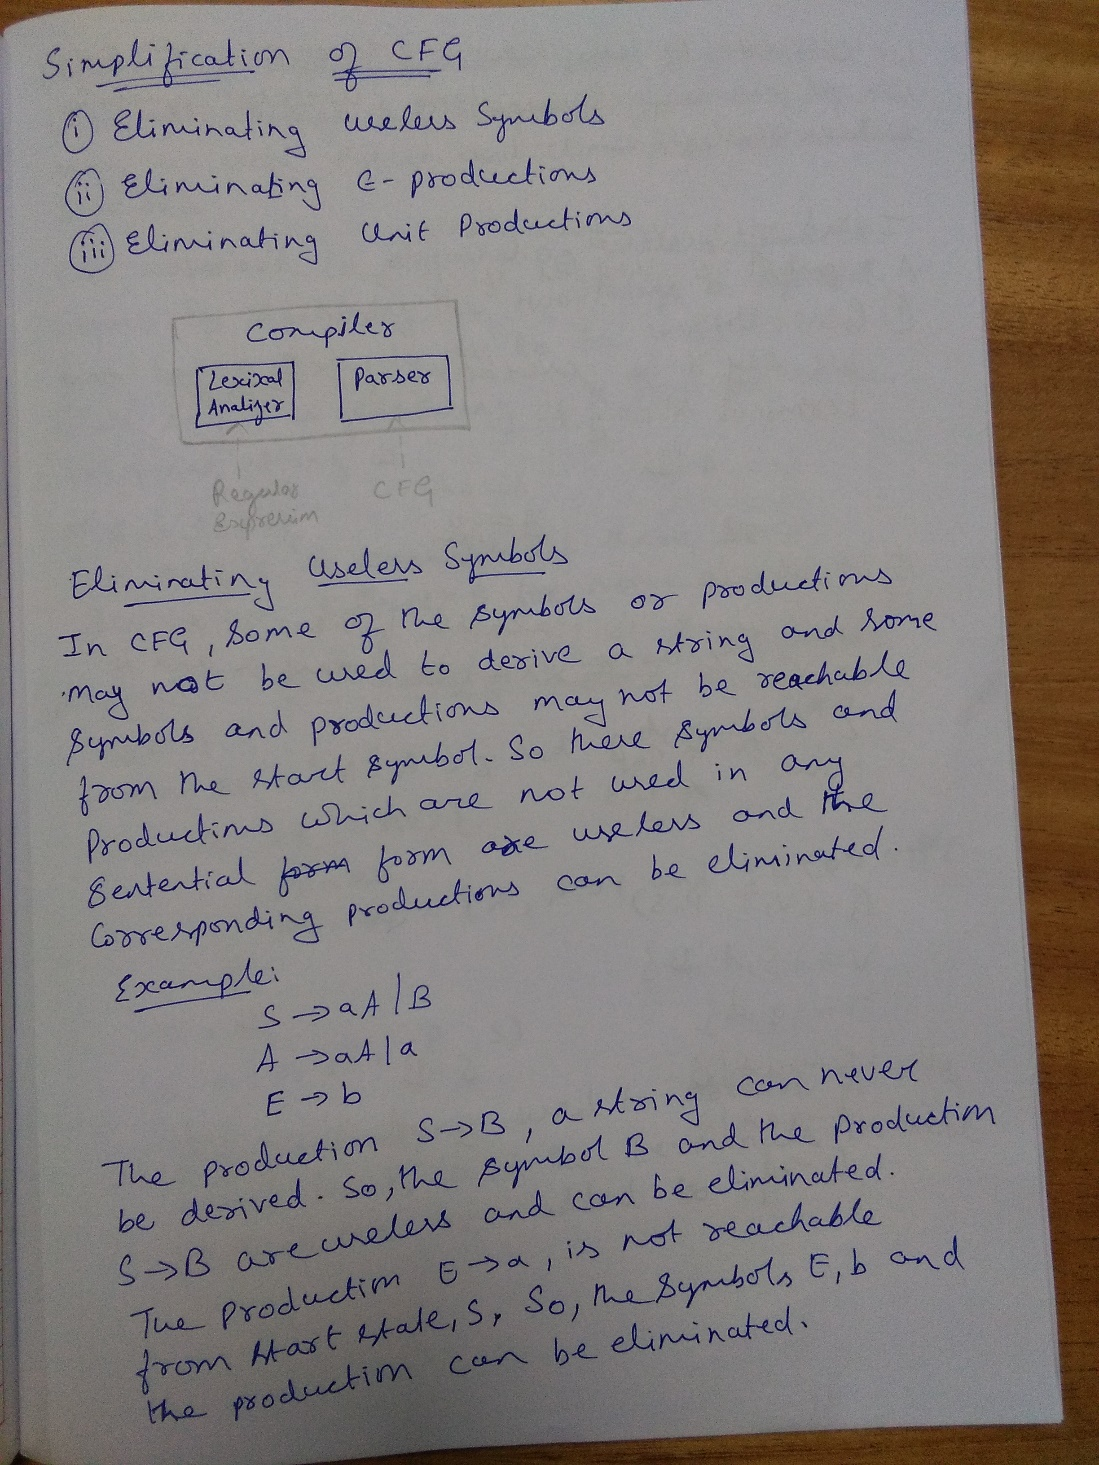 Simplification of CFG
(i) Eliminating useless Symbols
(ii) Eliminating ε-productions
(iii) Eliminating Unit Productions
Compiler
Lexixal
Analizer
Parser
Regular
Expression
CFG
Eliminating Useless Symbols
In CFG, some of the symbols or productions
may not be used to derive a string and some
symbols and productions may not be reachable
from the start symbol. So these symbols and
Productions which are not used in any
sentential form form are useless and the
Corresponding productions can be eliminated.
Example:
S → aA | B
A → aA | a
E → b
The production S → B, a string can never
be derived. So, the symbol B and the production
S → B are useless and can be eliminated.
The Production E → a, is not reachable
from start state, S, So, the symbols E, b and
the production can be eliminated.